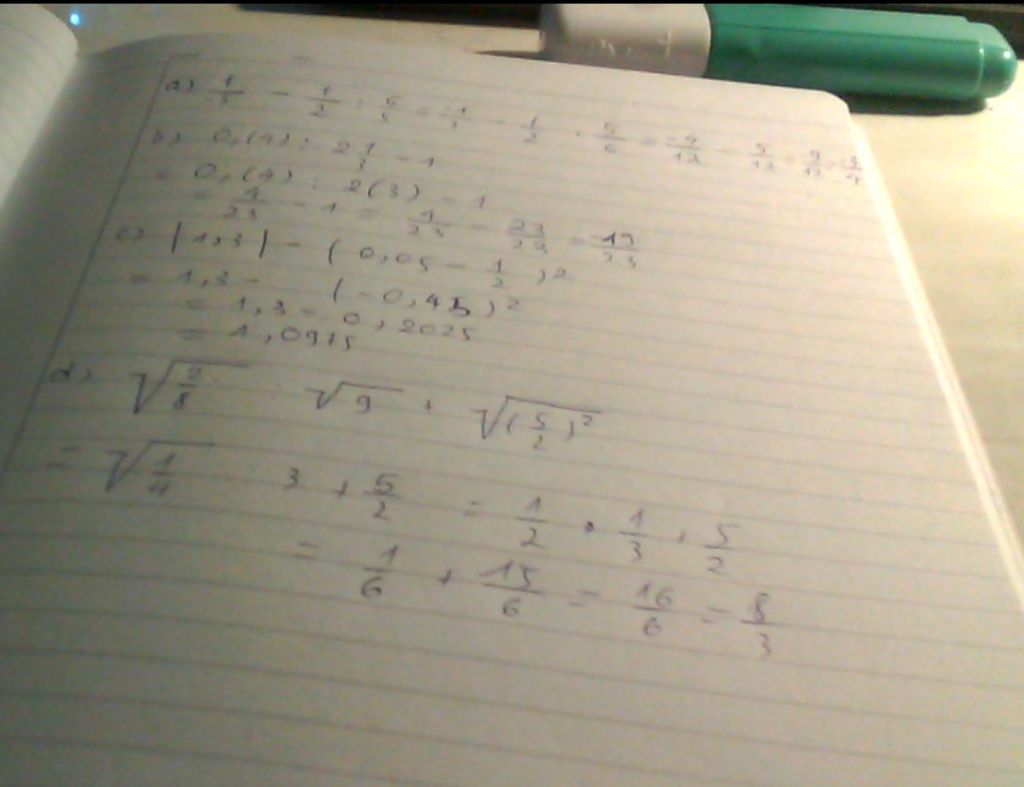 a) 1/3 - 1/2 : 6/5 = 1/3 - 1/2 · 5/6 = -4/12 - 5/12 = 9/12 = 3/4
b) 0,(4) : 2 1/3 - 1
= 0,(4) : 2(3) - 1
= 4/23 - 1 = 4/23 - 23/23 = -19/23
c) |1,3| - (0,05 - 1/2)²
= 1,3 - (-0,45)²
= 1,3 - 0,2025
= 1,0975
d) √(2/8) : √9 + √((5/2)²)
= √(1/4) : 3 + 5/2 = 1/2 · 1/3 + 5/2
= 1/6 + 15/6 = 16/6 = 8/3